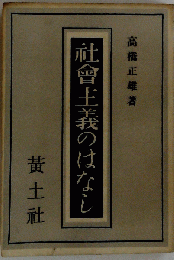 高橋正雄著
社會主義のはなし
黄土社